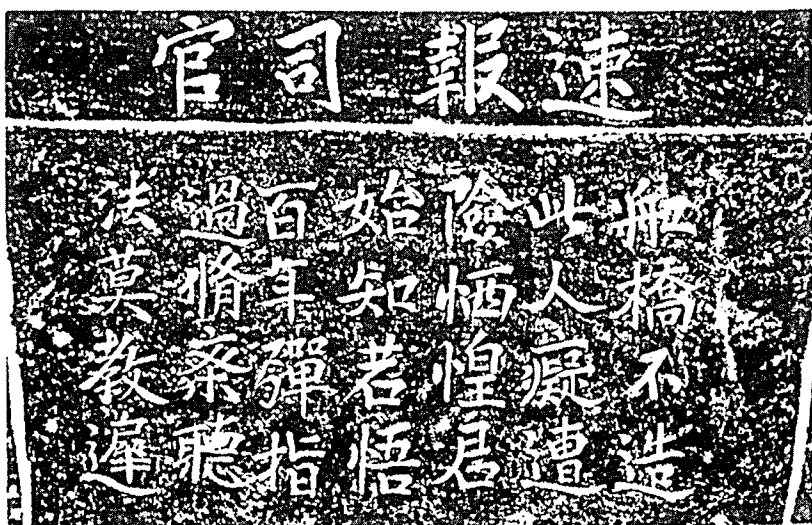 速報司官
舡橋不造
此人癡遭
險恓惶君
始知若悟
百年彈指
過脩叅聽
法莫教遲